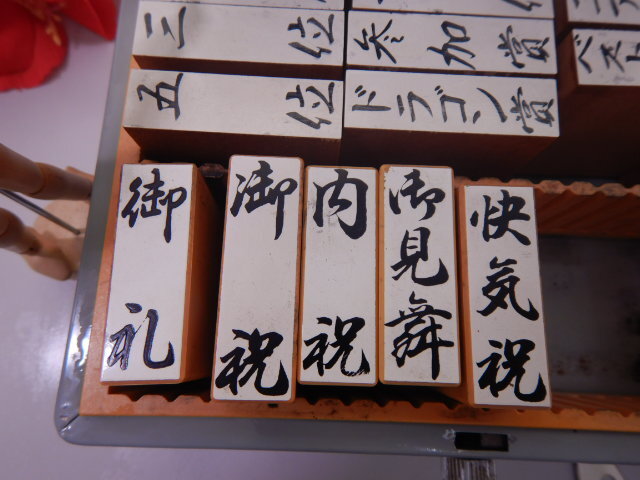 三位
参加賞
五位
ドラゴン賞
ベスト
御礼
御祝
内祝
御見舞
快気祝